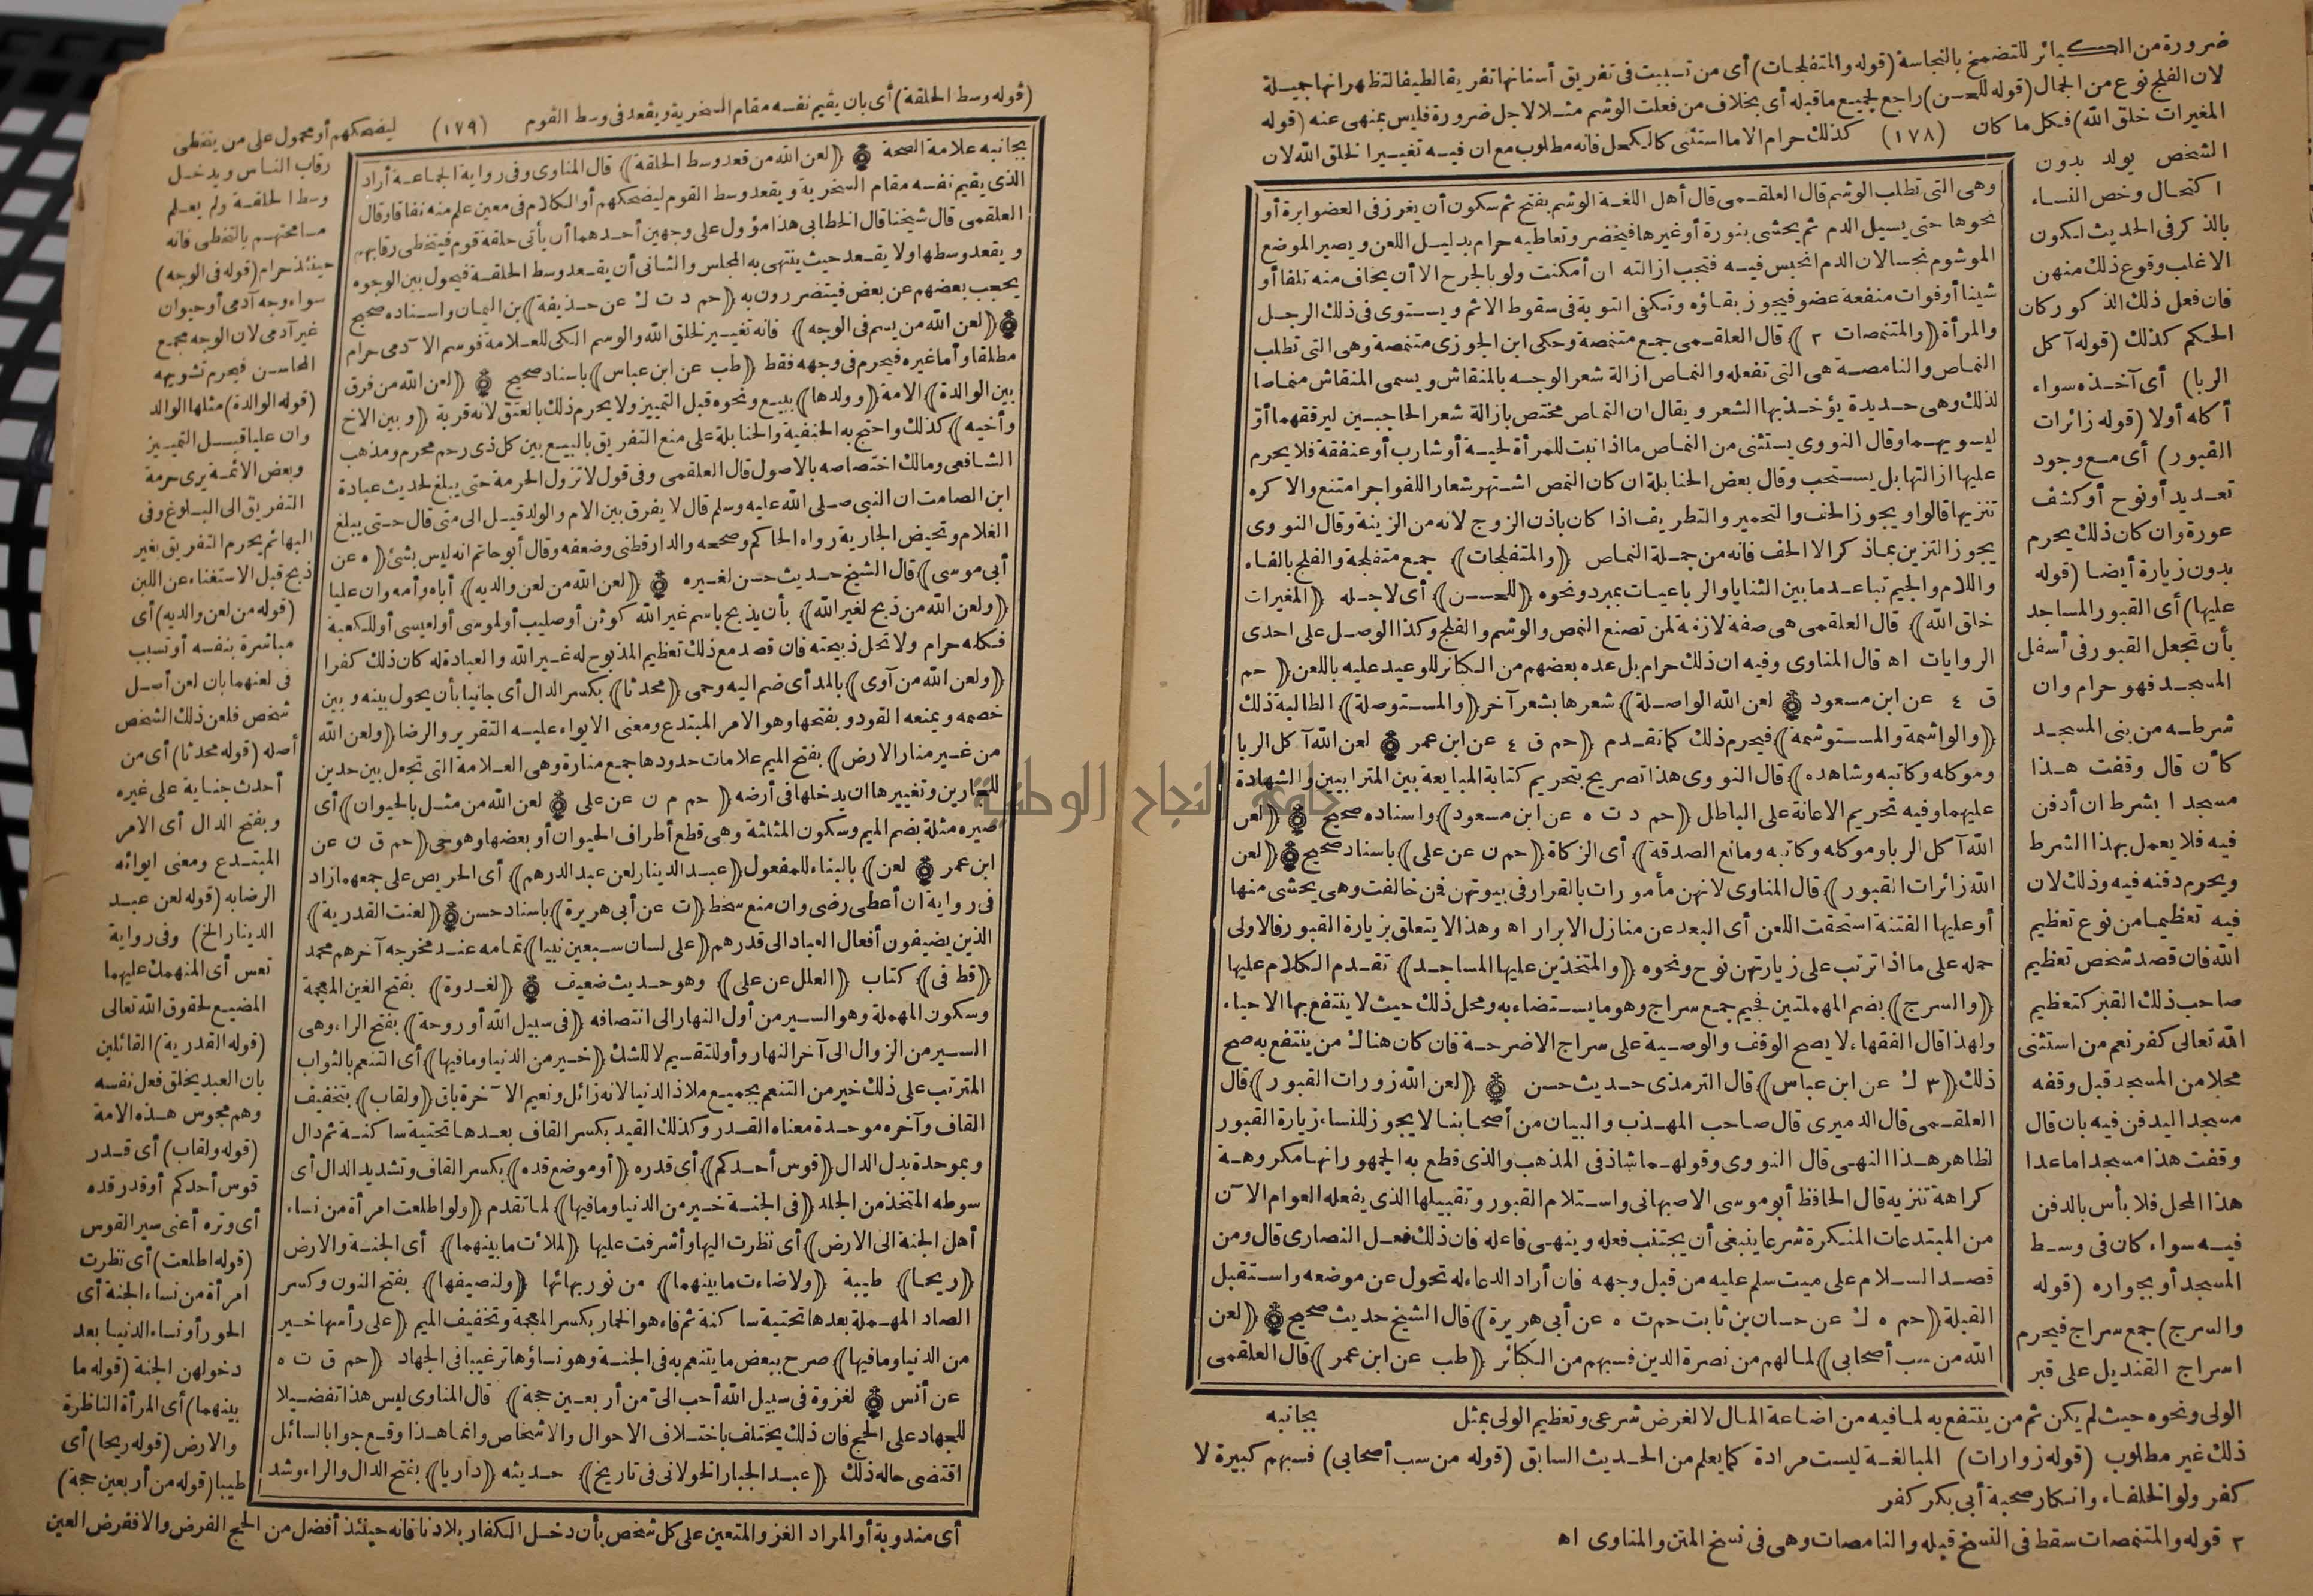 ضرورة من الكبائر للتضمخ بالنجاسة (قوله والمتفلجات) أى من تسببت فى تفريق أسنانها تفريقا لطيفا لتظهر انها جميلة
لان الفلج نوع من الجمال (قوله للحسن) راجع لجميع ماقبله أى بخلاف من فعلت الوشم مثلا لاجل ضرورة فليس بمنهى عنه (قوله
المغيرات خلق الله) فكل ما كان (١٧٨) كذلك حرام الا ما استثنى كالكحل فانه مطلوب مع ان فيه تغييرا لخلق الله لان
الشخص يولد بدون
اكتحال وخص النساء
بالذكر فى الحديث لكون
الاغلب وقوع ذلك منهن
فان فعل ذلك الذكور كان
الحكم كذلك (قوله آكل
الربا) أى آخذه سواء
أكله أولا (قوله زائرات
القبور) أى مع وجود
تعديد أو نوح أو كشف
عورة وان كان ذلك يحرم
بدون زيارة أيضا (قوله
عليها) أى القبور المساجد
بأن تجعل القبور فى أسفل
المسجد فهو حرام وان
شرطه من بنى المسجد
كأن قال وقفت هذا
مسجدا بشرط ان أدفن
فيه فلا يعمل بهذا الشرط
ويحرم دفنه فيه وذلك لان
فيه تعظيما من نوع تعظيم
الله فان قصد شخص تعظيم
صاحب ذلك القبر كتعظيم
الله تعالى كفر نعم من استثنى
محلا من المسجد قبل وقفه
مسجدا ليدفن فيه بان قال
وقفت هذا مسجدا ماعدا
هذا المحل فلا بأس بالدفن
فيه سواء كان فى وسط
المسجد أو بجواره (قوله
والسرج) جمع سراج فيحرم
اسراج القنديل على قبر
وهى التى تطلب الوشم قال العلقمى قال أهل اللغة الوشم بفتح ثم سكون أن يغرز فى العضو ابرة أو
نحوها حتى يسيل الدم ثم يحشى بنورة أو غيرها فيخضر وتعاطيه حرام بدليل اللعن ويصير الموضع
الموشوم نجسا لان الدم انحبس فيه فتجب ازالته ان أمكنت ولو بالجرح الا أن يخاف منه تلفا أو
شينا أو فوات منفعة عضو فيجوز بقاؤه وتكفى التوبة فى سقوط الاثم ويستوى فى ذلك الرجل
والمرأة ﴿والمتنمصات ٣﴾ قال العلقمى جمع متنمصة وحكى ابن الجوزى متنمصة وهى التى تطلب
النماص والنامصة هى التى تفعله والنماص ازالة شعر الوجه بالمنقاش ويسمى المنقاش منماصا
لذلك وهى حديدة يؤخذ بها الشعر ويقال ان النماص مختص بازالة شعر الحاجبين ليرققهما أو
ليسويهما وقال النووى يستثنى من النماص ما اذا نبت للمرأة لحية أو شارب أو عنفقة فلا يحرم
عليها ازالتها بل يستحب وقال بعض الحنابلة ان كان النمص اشتهر شعار اللفواجر امتنع والا كره
تنزيها قالوا ويجوز الحف والتحمير والتطريف اذا كان باذن الزوج لانه من الزينة وقال النووى
يجوز التزين بماذكر الا الحف فانه من جملة النماص ﴿والمتفلجات﴾ جمع متفلجة والفلج بالفاء
واللام والجيم تباعد ما بين الثنايا والرباعيات بمبرد ونحوه ﴿للحسن﴾ أى لاجله ﴿المغيرات
خلق الله﴾ قال العلقمى هى صفة لازمة لمن تصنع النمص والوشم والفلج وكذا الوصل على احدى
الروايات اه قال المناوى وفيه ان ذلك حرام بل عده بعضهم من الكبائر للوعيد عليه باللعن ﴿حم
ق ٤ عن ابن مسعود ۞ لعن الله الواصلة﴾ شعرها بشعر آخر ﴿والمستوصلة﴾ الطالبة ذلك
﴿والواشمة والمستوشمة﴾ فيحرم ذلك كما تقدم ﴿حم ق ٤ عن ابن عمر ۞ لعن الله آكل الربا
وموكله وكاتبه وشاهده﴾ قال النووى هذا تصريح بتحريم كتابة المبايعة بين المترابيين والشهادة
عليهما وفيه تحريم الاعانة على الباطل ﴿حم د ت ه عن ابن مسعود﴾ واسناده صحيح ۞ ﴿لعن
الله آكل الربا وموكله وكاتبه ومانع الصدقة﴾ أى الزكاة ﴿حم ن عن على﴾ باسناد صحيح ۞ ﴿لعن
الله زائرات القبور﴾ قال المناوى لانهن مأمورات بالقرار فى بيوتهن فمن خالفت وهى يخشى منها
أو عليها الفتنة استحقت اللعن أى البعد عن منازل الابرار اه وهذا لا يتعلق بزيارة القبور فالاولى
حمله على ما اذا ترتب على زيارتهن نوح ونحوه ﴿والمتخذين عليها المساجد﴾ تقدم الكلام عليها
﴿والسرج﴾ بضم المهملتين فجيم جمع سراج وهو ما يستضاء به ومحل ذلك حيث لا ينتفع بها الاحياء
ولهذا قال الفقهاء لا يصح الوقف والوصية على سراج الاضرحة فان كان هناك من ينتفع به صح
ذلك ﴿٣ ك عن ابن عباس﴾ قال الترمذى حديث حسن ۞ ﴿لعن الله زورات القبور﴾ قال
العلقمى قال الدميرى قال صاحب المهذب والبيان من أصحابنا لا يجوز للنساء زيارة القبور
لظاهر هذا النهى قال النووى وقولهما شاذ فى المذهب والذى قطع به الجمهور انها مكروهة
كراهة تنزيه قال الحافظ أبو موسى الاصبهانى واستلام القبور وتقبيلها الذى يفعله العوام الآن
من المبتدعات المنكرة شرعا ينبغى أن يجتنب فعله وينهى فاعله فان ذلك فعل النصارى قال ومن
قصد السلام على ميت سلم عليه من قبل وجهه فان أراد الدعاء له تحول عن موضعه واستقبل
القبلة ﴿حم ه ك عن حسان بن ثابت حم ت ه عن أبى هريرة﴾ قال الشيخ حديث صحيح ۞ ﴿لعن
الله من سب أصحابى﴾ لما لهم من نصرة الدين فسبهم من الكبائر ﴿طب عن ابن عمر﴾ قال العلقمى
بجانبه
الولى ونحوه حيث لم يكن ثم من ينتفع به لما فيه من اضاعة المال لا لغرض شرعى وتعظيم الولى بمثل
ذلك غير مطلوب (قوله زوارات) المبالغة ليست مرادة كما يعلم من الحديث السابق (قوله من سب أصحابى) فسبهم كبيرة لا
كفر ولو الخلفاء وانكار صحبة أبى بكر كفر
٣ قوله والمتنمصات سقط فى النسخ قبله والنامصات وهى فى نسخ المتن والمناوى اه
(قوله وسط الحلقة) أى بان يقيم نفسه مقام السخرية ويقعد فى وسط القوم (١٧٩) ليضحكهم أو محمول على من يتخطى
رقاب الناس ويدخل
وسط الحلقة ولم يعلم
مسامحتهم بالتخطى فانه
حينئذ حرام (قوله فى الوجه)
سواء وجه آدمى أو حيوان
غير آدمى لان الوجه مجمع
المحاسن فيحرم تشويهه
(قوله الوالدة) مثلها الوالد
وان عليا قبل التمييز
وبعض الائمة يرى حرمة
التفريق الى البلوغ وفى
البهائم يحرم التفريق بغير
ذبح قبل الاستغناء عن اللبن
(قوله من لعن والديه) أى
مباشرة بنفسه أو تسبب
فى لعنهما بان لعن أصل
شخص فلعن ذلك الشخص
أصله (قوله محدثا) أى من
أحدث جناية على غيره
وبفتح الدال أى الامر
المبتدع ومعنى ايوائه
الرضا به (قوله لعن عبد
الدينار الخ) وفى رواية
تعس أى المنهمك عليهما
المضيع لحقوق الله تعالى
(قوله القدرية) القائلين
بان العبد يخلق فعل نفسه
وهم مجوس هذه الامة
(قوله ولقاب) أى قدر
قوس أحدكم أو قدر قده
أى وتره أعنى سير القوس
(قوله اطلعت) أى نظرت
امرأة من نساء الجنة أى
الحور أو نساء الدنيا بعد
دخولهن الجنة (قوله ما
بينهما) أى المرأة الناظرة
والارض (قوله ريحا) أى
طيبا (قوله من أربعين حجة)
بجانبه علامة الصحة ۞ ﴿لعن الله من قعد وسط الحلقة﴾ قال المناوى وفى رواية الجماعة أراد
الذى يقيم نفسه مقام السخرية ويقعد وسط القوم ليضحكهم أو الكلام فى معين علم منه نفاقا وقال
العلقمى قال شيخنا قال الخطابى هذا مؤول على وجهين أحدهما أن يأتى حلقة قوم فيتخطى رقابهم
ويقعد وسطها ولا يقعد حيث ينتهى به المجلس والثانى أن يقعد وسط الحلقة فيحول بين الوجوه
يحجب بعضهم عن بعض فيتضررون به ﴿حم د ت ك عن حذيفة﴾ بن اليمان واسناده صحيح
۞ ﴿لعن الله من يسم فى الوجه﴾ فانه تغيير لخلق الله والوسم الكى للعلامة فوسم الآدمى حرام
مطلقا وأما غيره فيحرم فى وجهه فقط ﴿طب عن ابن عباس﴾ باسناد صحيح ۞ ﴿لعن الله من فرق
بين الوالدة﴾ الامة ﴿وولدها﴾ ببيع ونحوه قبل التمييز ولا يحرم ذلك بالعتق لانه قربة ﴿وبين الاخ
وأخيه﴾ كذلك واحتج به الحنفية والحنابلة على منع التفريق بالبيع بين كل ذى رحم محرم ومذهب
الشافعى ومالك اختصاصه بالاصول قال العلقمى وفى قول لا تزول الحرمة حتى يبلغ لحديث عبادة
ابن الصامت ان النبى صلى الله عليه وسلم قال لا يفرق بين الام والولد قيل الى متى قال حتى يبلغ
الغلام وتحيض الجارية رواه الحاكم وصححه والدارقطنى وضعفه وقال أبو حاتم انه ليس بشئ ﴿ه عن
أبى موسى﴾ قال الشيخ حديث حسن لغيره ۞ ﴿لعن الله من لعن والديه﴾ أباه وأمه وان عليا
﴿ولعن الله من ذبح لغير الله﴾ بأن يذبح باسم غير الله كوثن أو صليب أو لموسى أو لعيسى أو للكعبة
فكله حرام ولا تحل ذبيحته فان قصد مع ذلك تعظيم المذبوح له غير الله والعبادة له كان ذلك كفرا
﴿ولعن الله من آوى﴾ بالمد أى ضم اليه وحمى ﴿محدثا﴾ بكسر الدال أى جانيا بأن يحول بينه وبين
خصمه ويمنعه القود وبفتحها وهو الامر المبتدع ومعنى الايواء عليه التقرير والرضا ﴿ولعن الله
من غير منار الارض﴾ بفتح الميم علامات حدودها جمع منارة وهى العلامة التى تجعل بين حدين
للجارين وتغييرها ان يدخلها فى أرضه ﴿حم م ن عن على ۞ لعن الله من مثل بالحيوان﴾ أى
صيره مثلة بضم الميم وسكون المثلثة وهى قطع أطراف الحيوان أو بعضها وهو حى ﴿حم ق ن عن
ابن عمر ۞ لعن﴾ بالبناء للمفعول ﴿عبد الدينار لعن عبد الدرهم﴾ أى الحريص على جمعهما زاد
فى رواية ان أعطى رضى وان منع سخط ﴿ت عن أبى هريرة﴾ باسناد حسن ۞ ﴿لعنت القدرية﴾
الذين يضيفون أفعال العباد الى قدرهم ﴿على لسان سبعين نبيا﴾ تمامه عند مخرجه آخرهم محمد
﴿قط فى﴾ كتاب ﴿العلل عن على﴾ وهو حديث ضعيف ۞ ﴿لغدوة﴾ بفتح الغين المعجمة
وسكون المهملة وهو السير من أول النهار الى انتصافه ﴿فى سبيل الله أو روحة﴾ بفتح الراء وهى
السير من الزوال الى آخر النهار وأو للتقسيم لا للشك ﴿خير من الدنيا وما فيها﴾ أى التنعم بالثواب
المترتب على ذلك خير من التنعم بجميع ملاذ الدنيا لانه زائل ونعيم الآخرة باق ﴿ولقاب﴾ بتخفيف
القاف وآخره موحدة معناه القدر وكذلك القيد بكسر القاف بعدها تحتية ساكنة ثم دال
وبموحدة بدل الدال ﴿قوس أحدكم﴾ أى قدره ﴿أو موضع قده﴾ بكسر القاف وتشديد الدال أى
سوطه المتخذ من الجلد ﴿فى الجنة خير من الدنيا وما فيها﴾ لما تقدم ﴿ولو اطلعت امرأة من نساء
أهل الجنة الى الارض﴾ أى نظرت اليها وأشرفت عليها ﴿لملأت ما بينهما﴾ أى الجنة والارض
﴿ريحا﴾ طيبة ﴿ولاضاءت ما بينهما﴾ من نور بهائها ﴿ولنصيفها﴾ بفتح النون وكسر
الصاد المهملة بعدها تحتية ساكنة ثم فاء هو الخمار بكسر المعجمة وتخفيف الميم ﴿على رأسها خير
من الدنيا وما فيها﴾ صرح ببعض ما يتنعم به فى الجنة وهو نساؤها ترغيبا فى الجهاد ﴿حم ق ت ه
عن أنس ۞ لغزوة فى سبيل الله أحب الىّ من أربعين حجة﴾ قال المناوى ليس هذا تفضيلا
للجهاد على الحج فان ذلك يختلف باختلاف الاحوال والاشخاص وانما هذا وقع جوابا لسائل
اقتضى حاله ذلك ﴿عبد الجبار الخولانى فى تاريخ﴾ حديثه ﴿داريا﴾ بفتح الدال والراء وشد
أى مندوبة أو المراد الغزو المتعين على كل شخص بأن دخل الكفار بلادنا فانه حينئذ أفضل من الحج الفرض والا ففرض العين
جامعة النجاح الوطنية